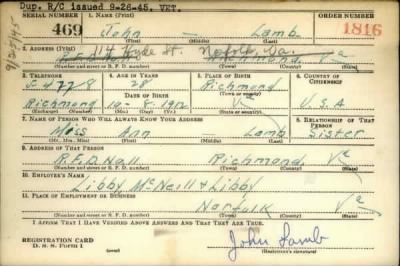 Dup. R/C issued 9-26-45. VET.
SERIAL NUMBER 1. NAME (Print) ORDER NUMBER
469 John — Lamb 1816
(First) (Middle) (Last)
2. ADDRESS (Print)
Hyde St. Norfolk, Va.
Richmond Va
(Number and street or R. F. D. number) (Town) (County) (State)
3. TELEPHONE 4. AGE IN YEARS 5. PLACE OF BIRTH 6. COUNTRY OF CITIZENSHIP
5-4778 28 Richmond
DATE OF BIRTH (Town or county)
Richmond 10-8-1912 Va U.S.A
(Exchange) (Number) (Mo.) (Day) (Yr.) (State or country)
7. NAME OF PERSON WHO WILL ALWAYS KNOW YOUR ADDRESS 8. RELATIONSHIP OF THAT PERSON
Miss Ann — Lamb Sister
(Mr., Mrs., Miss) (First) (Middle) (Last)
9. ADDRESS OF THAT PERSON
R.F.D. Richmond Va
(Number and street or R. F. D. number) (Town) (County) (State)
10. EMPLOYER'S NAME
Libby McNeill & Libby
11. PLACE OF EMPLOYMENT OR BUSINESS
Norfolk Va
(Number and street or R. F. D. number) (Town) (County) (State)
I AFFIRM THAT I HAVE VERIFIED ABOVE ANSWERS AND THAT THEY ARE TRUE.
REGISTRATION CARD
D. S. S. FORM 1 John Lamb
(Registrant's signature)